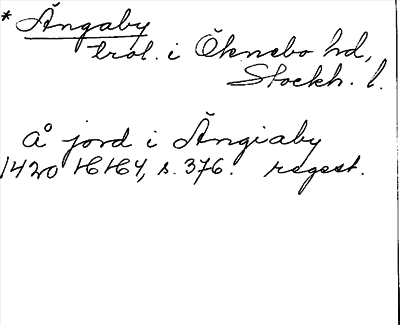 * Ängaby
trol. i Öknebo hd,
Stockh. l.
å jord i Ängiaby
1420 HH 24, s. 376. regest.